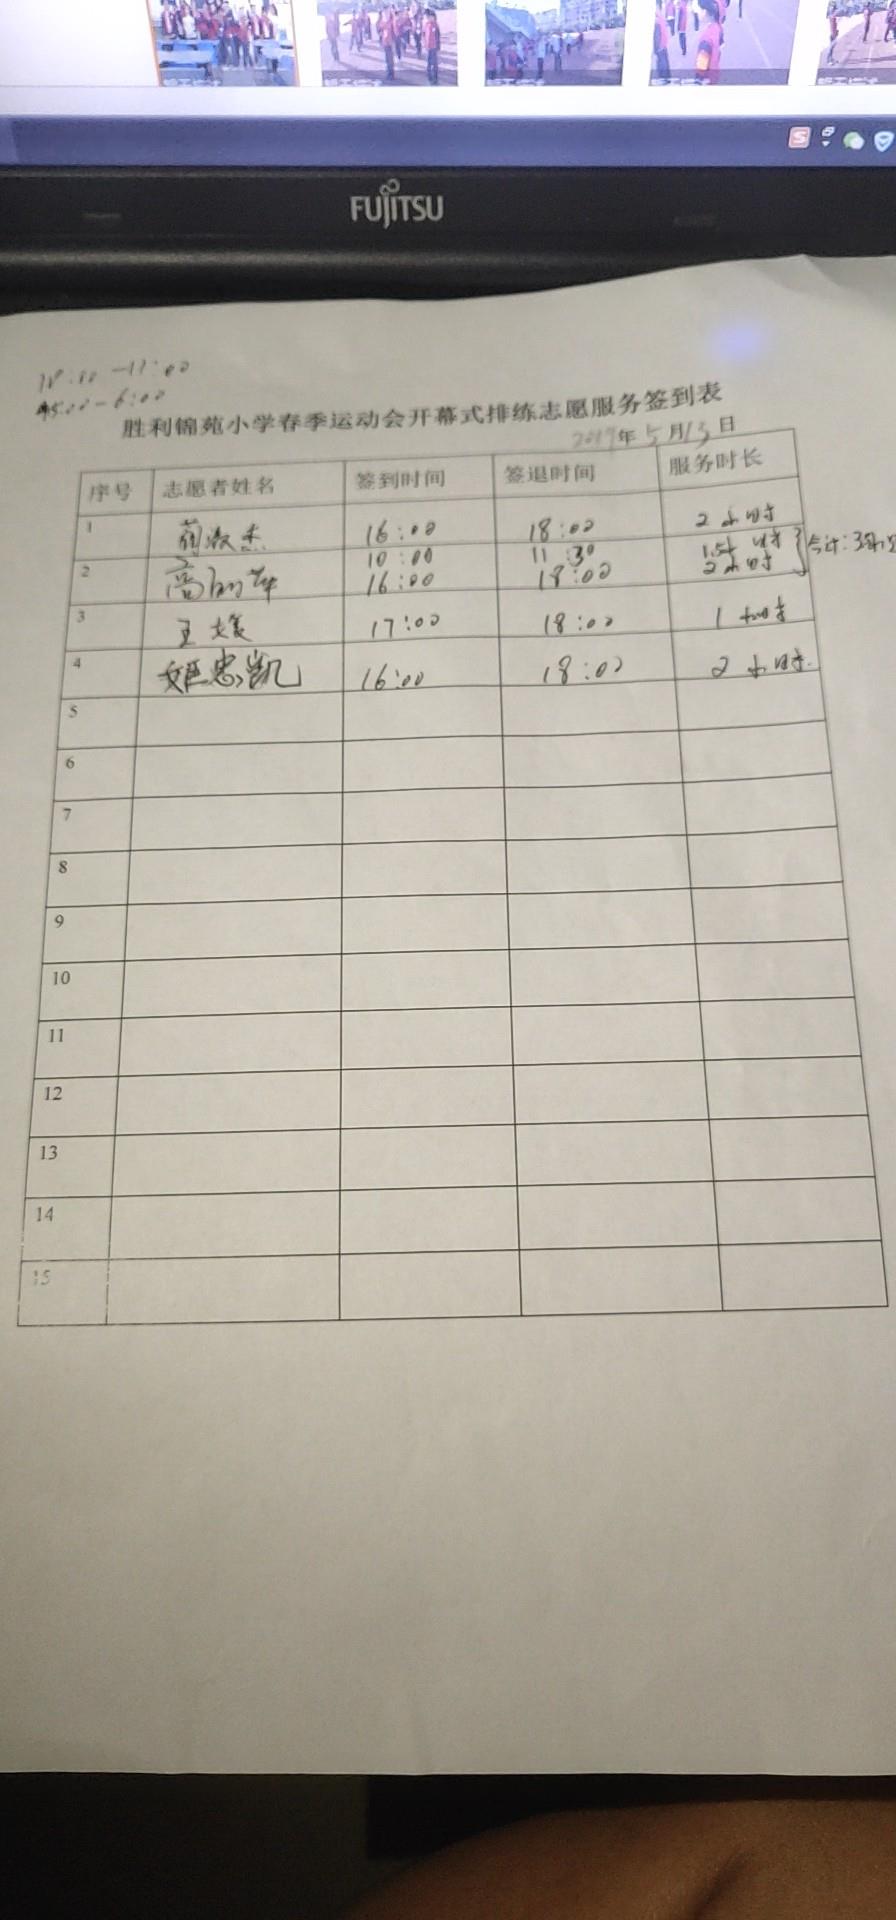 FUJITSU
-11:00
45:00-6:00
胜利锦苑小学春季运动会开幕式排练志愿服务签到表
2019年5月13日
序号 志愿者姓名 签到时间 签退时间 服务时长
1 淑杰 16:00 18:00 2小时
2 高丽萍 10:00 11:30 1.5小时
16:00 18:00 2小时 合计:
3 王 17:00 18:00 1小时
4 姬忠凯 16:00 18:00 2小时.
5
6
7
8
9
10
11
12
13
14
15